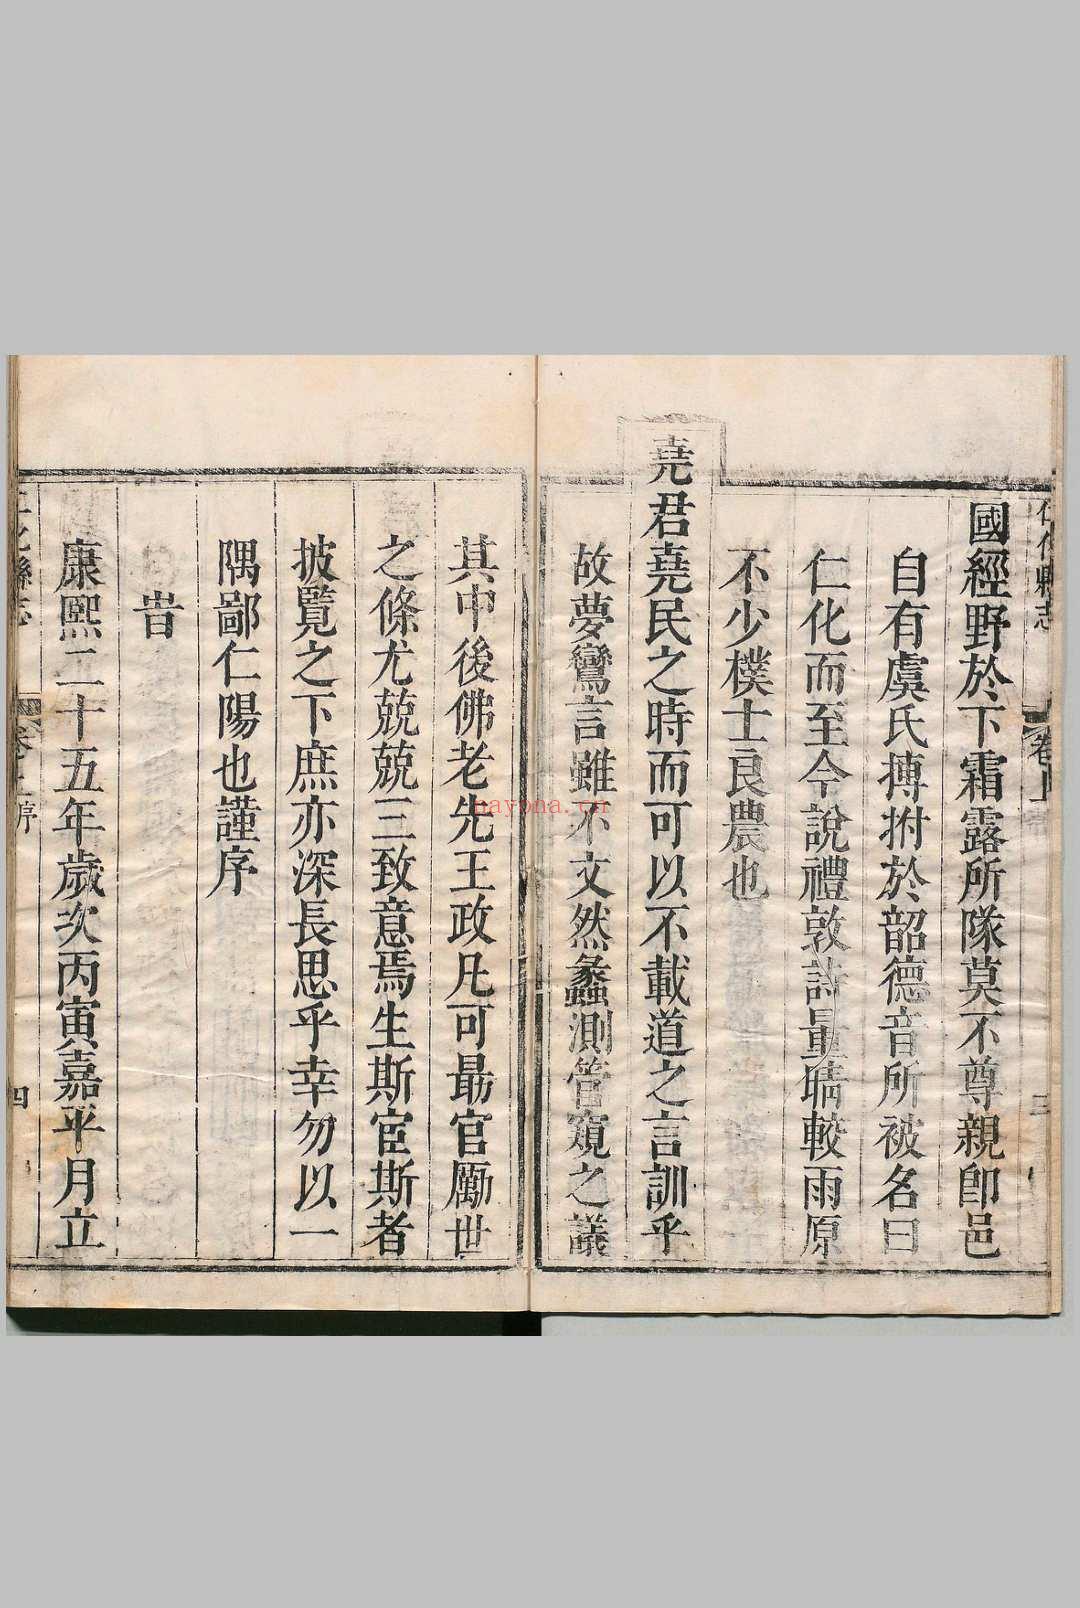 仁化縣志
卷上
三
國經野於下霜露所隊莫不尊親卽邑
自有虞氏搏拊於韶德音所被名曰
仁化而至今說禮敦詩量晴較雨原
不少樸士良農也
堯君堯民之時而可以不載道之言訓乎
故夢鸞言雖不文然蠡測管窺之議
其中後佛老先王政凡可最官勵世
之條尤兢兢三致意焉生斯宦斯者
披覽之下庶亦深長思乎幸勿以一
隅鄙仁陽也謹序
旹
康熙二十五年歲次丙寅嘉平月立
仁化縣志
卷上序
四
nayona.cn